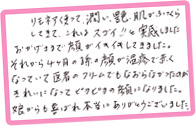 リもすくまって、潤い、艶、肌がふっくら
してきて、これはスゴイ!!と実感しました
おかげさまで顔がイキイキしてきました。
それから4ヶ月の孫の顔が湿疹で赤く
なっていて医者のクリームでもなおらなかったのが
きれいになってピカピカの顔になりました。
娘からも喜ばれ本当にありがとうございました。